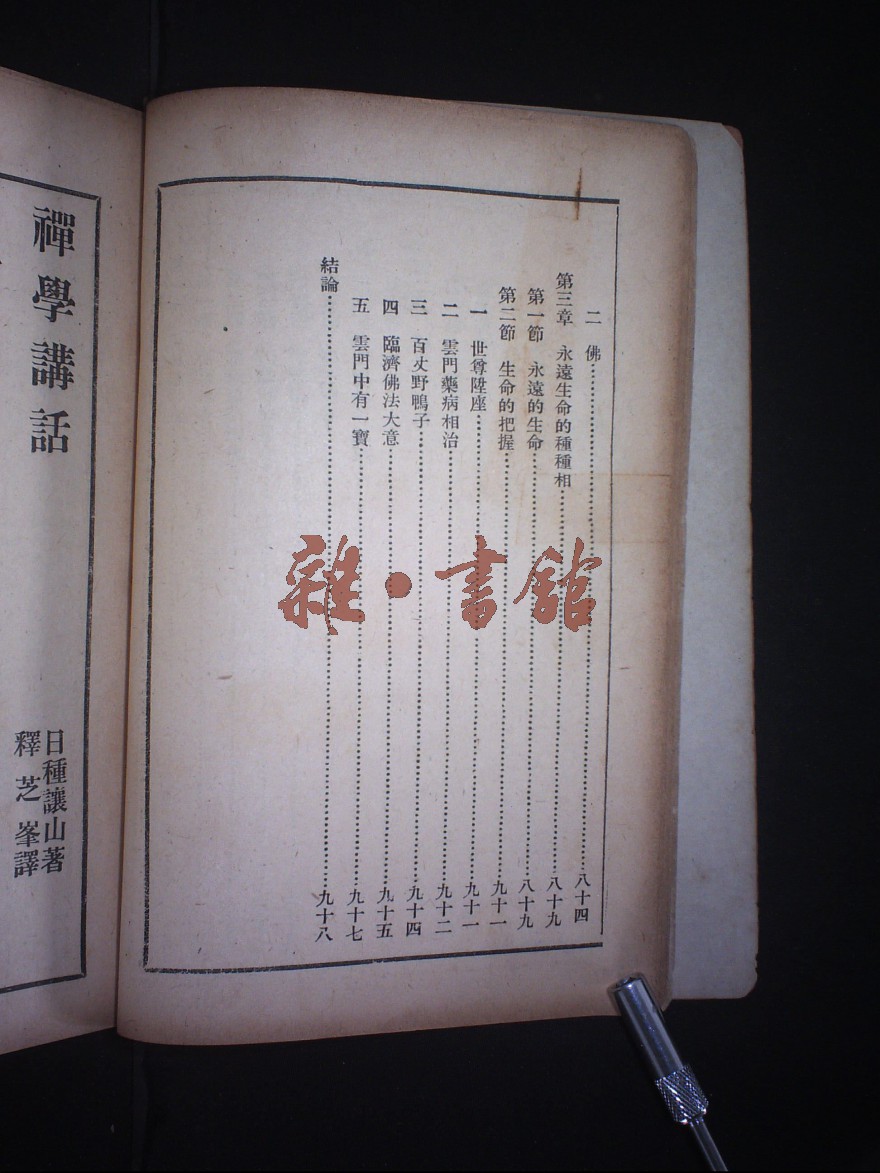 二　佛……八十四
第三章　永遠生命的種種相……八十九
第一節　永遠的生命……八十九
第二節　生命的把握……九十一
一　世尊陞座……九十一
二　雲門藥病相治……九十二
三　百丈野鴨子……九十四
四　臨濟佛法大意……九十五
五　雲門中有一寶……九十七
結論……九十八
禪學講話
日種讓山著
釋芝峯譯
雜·書館